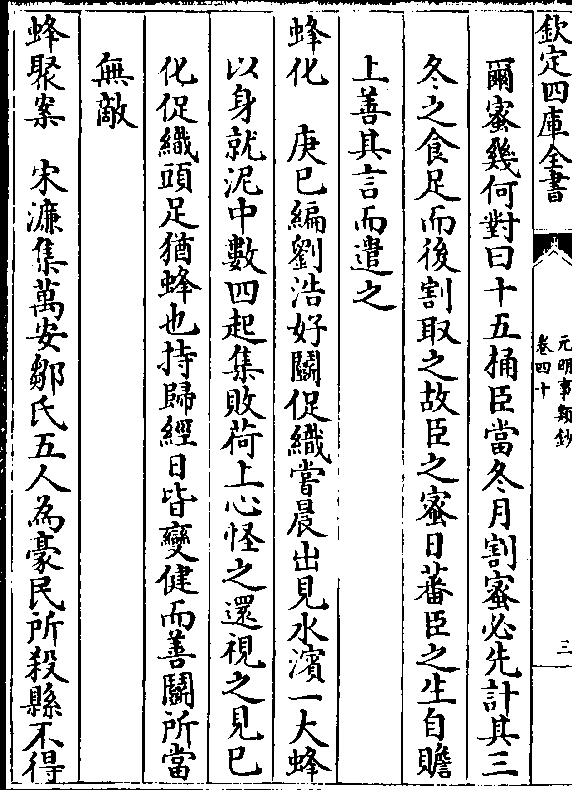 欽定四庫全書
元明事類鈔
卷四十
三
爾蜜幾何對曰十五桶臣當冬月割蜜必先計其三
冬之食足而後割取之故臣之蜜日蕃臣之生自贍
上善其言而遣之
蜂化　庚巳編劉浩好鬭促織嘗晨出見水濱一大蜂
以身就泥中數四起集敗荷上心怪之還視之見已
化促織頭足猶蜂也持歸經日皆變健而善鬭所當
無敵
蜂聚案　宋濂集萬安鄒氏五人為豪民所殺縣不得